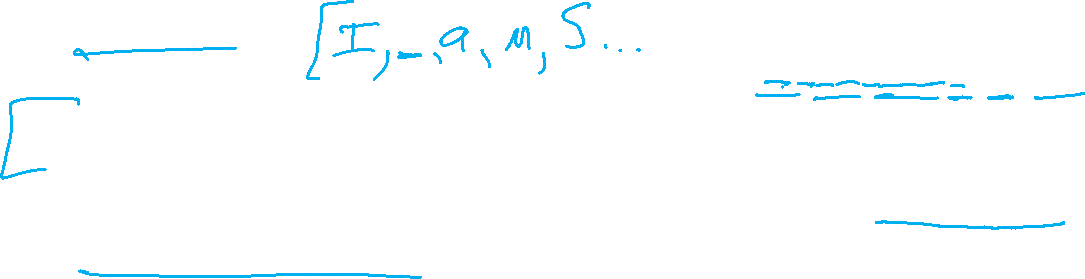 [I, _, a, m, S...